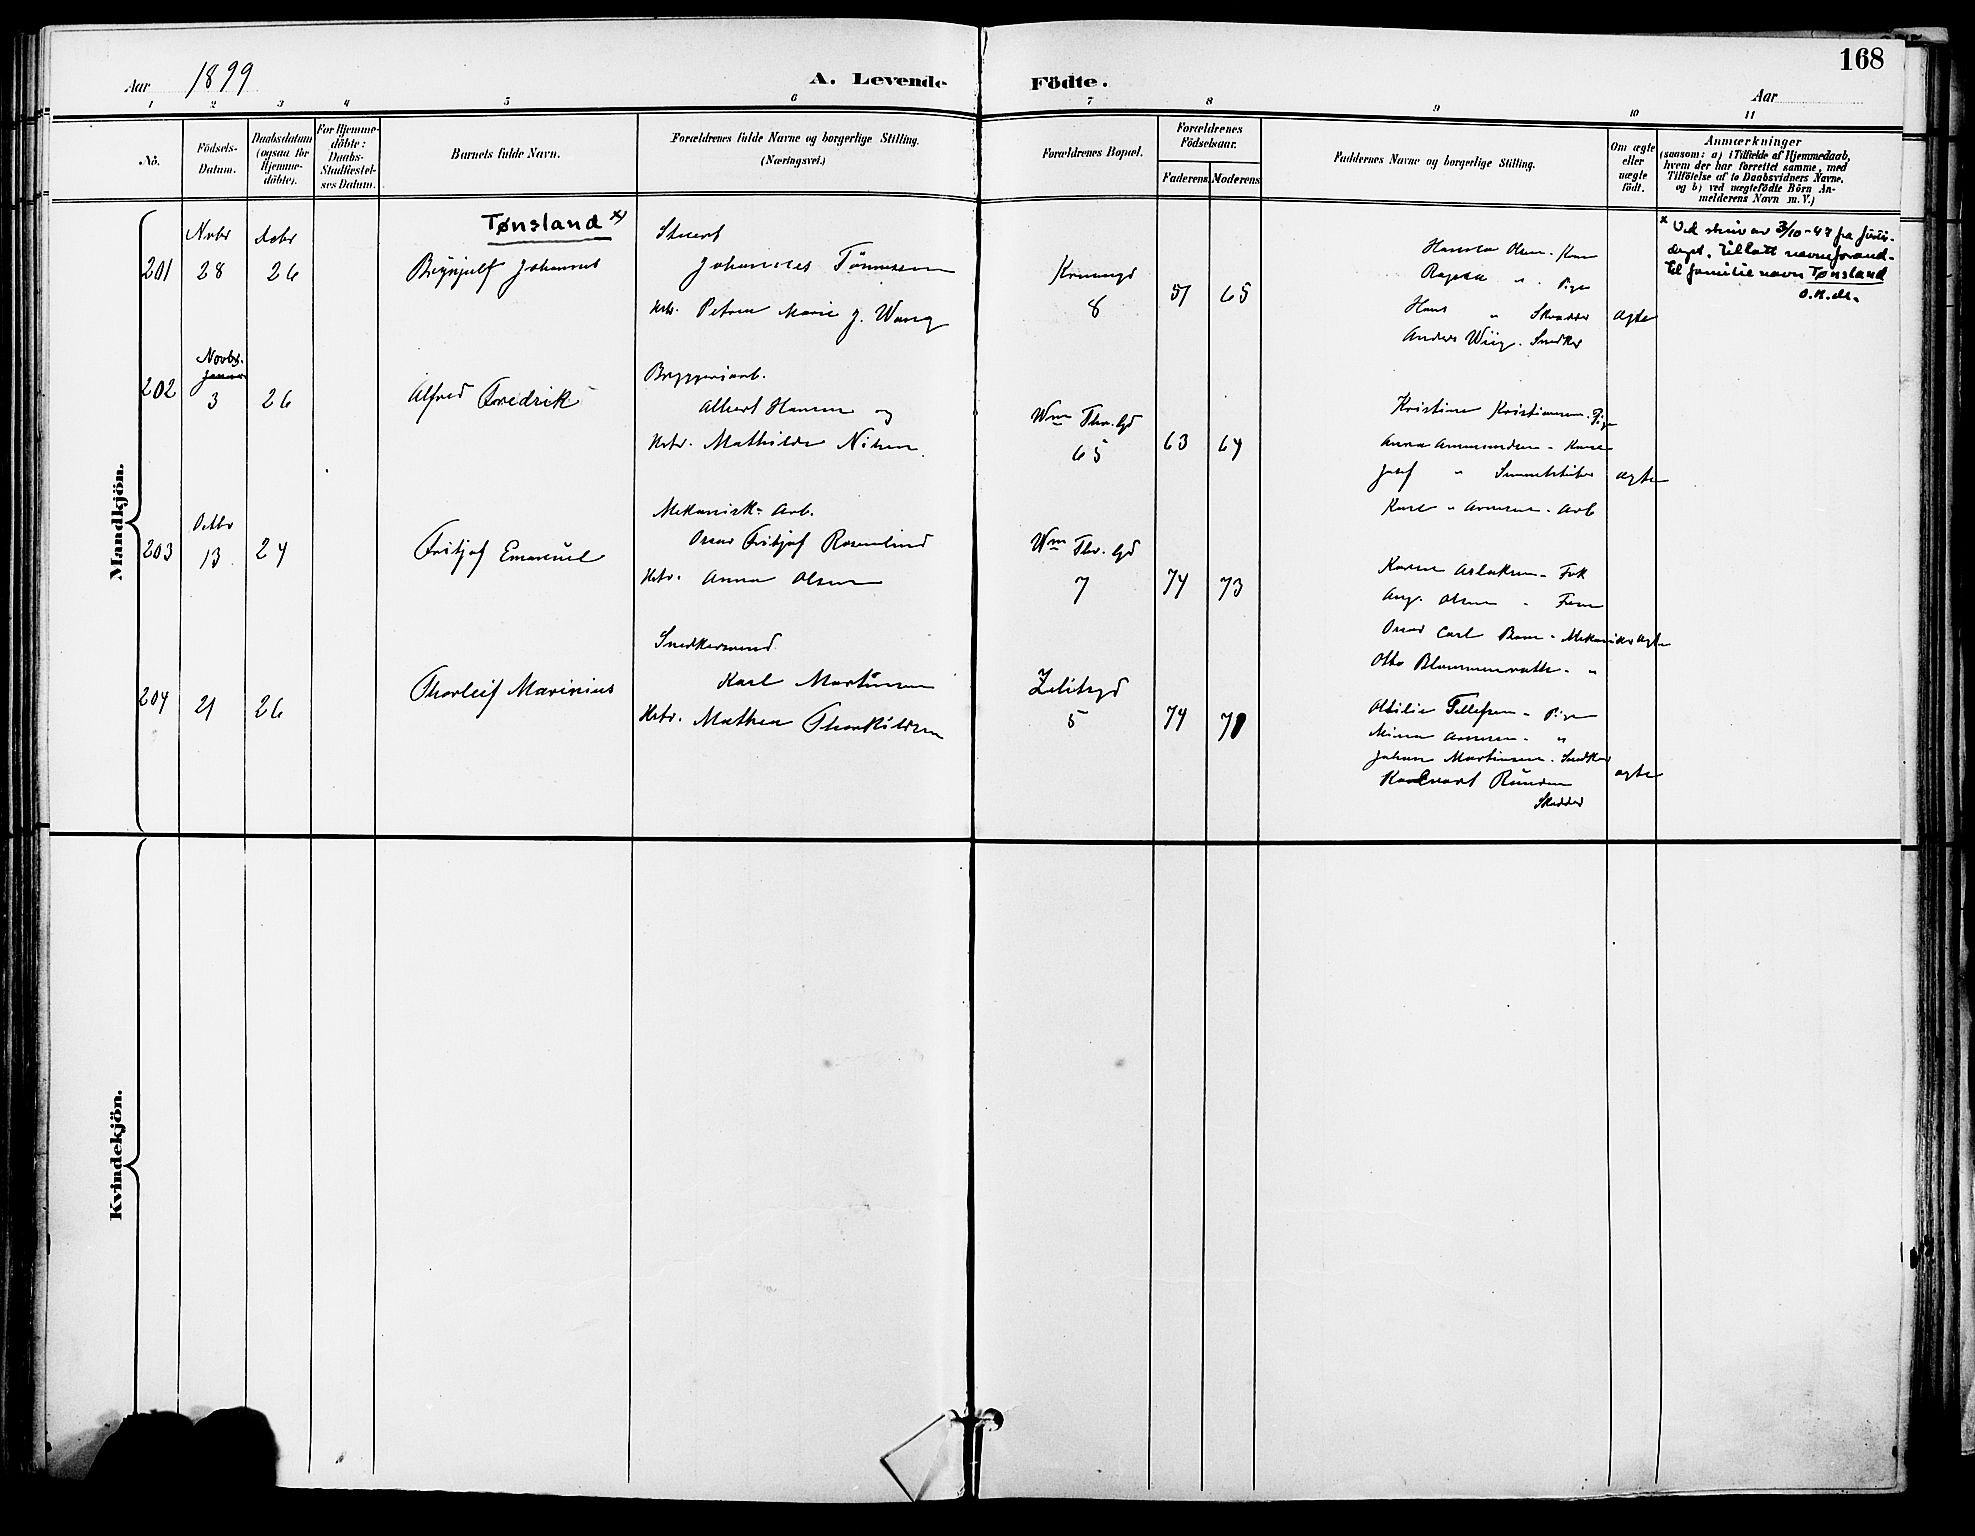 168
Aar 1899
A. Levende Födte.
Aar
1 2 3 4 5 6 7 8 9 10 11
No.
Födsels-
Datum.
Daabsdatum
(ogsaa for
Hjemme-
döbte).
For Hjemme-
döbte:
Daabs-
Stadfæstel-
ses Datum.
Barnets fulde Navn.
Forældrenes fulde Navne og borgerlige Stilling.
(Næringsvei.)
Forældrenes Bopæl.
Forældrenes
Födselsaar.
Faderens. Moderens
Faddernes Navne og borgerlige Stilling.
Om ægte
eller
uægte
födt.
Anmærkninger
(saasom: a) i Tilfælde af Hjemmedaab,
hvem der har forrettet samme, med
Tilföielse af to Daabsvidners Navne,
og b) ved uægtefödte Börn An-
melderens Navn m. V.)
Mandkjön.
201
Novbr
28
Decbr
26
Tønsland x)
Brynjulf Johannes
Stuert
Johannes Tönnessen
Hstr. Petrea Marie J. Wang
8
51
65
Olsen
Hans " Skrædder
Anders Wiig. Snedker
ægte
x Ved skriv av 3/10-47 fra Justi-
dept. tillatt navneforand-
til familienavn Tønsland
202
Novbr.
3
26
Alfred Fredrik
Bryggeriarb.
Albert Hansen og
Hstr. Mathilde Nilsen
Wm Thr. Gd
65
63
64
Kristine Kristiansen. Pige
Anna Amundsen - Kone
Josef "
ægte
Karl " Arnesen - Arb
203
Octbr
13
24
Fritjof Emanuel
Mekanisk- Arb.
Oscar Fritjof Rosenlind
Hstr. Anna Olsen
Wm Thr. Gd
7
74
73
Karen Aslaksen - Frk
Aug. Olsen
Oscar Carl - Mekaniker
ægte
Otto Blommenrath - "
204
21
26
Thorleif Marinius
Snedkersvend
Karl Martinsen
Hstr. Mathea Thorkildsen
5
74
71
Ottilie Tellefsen - Pige
Mina Arnesen - "
Johan Martinsen. Snedker
ægte
Skrædder
Kvindekjön.